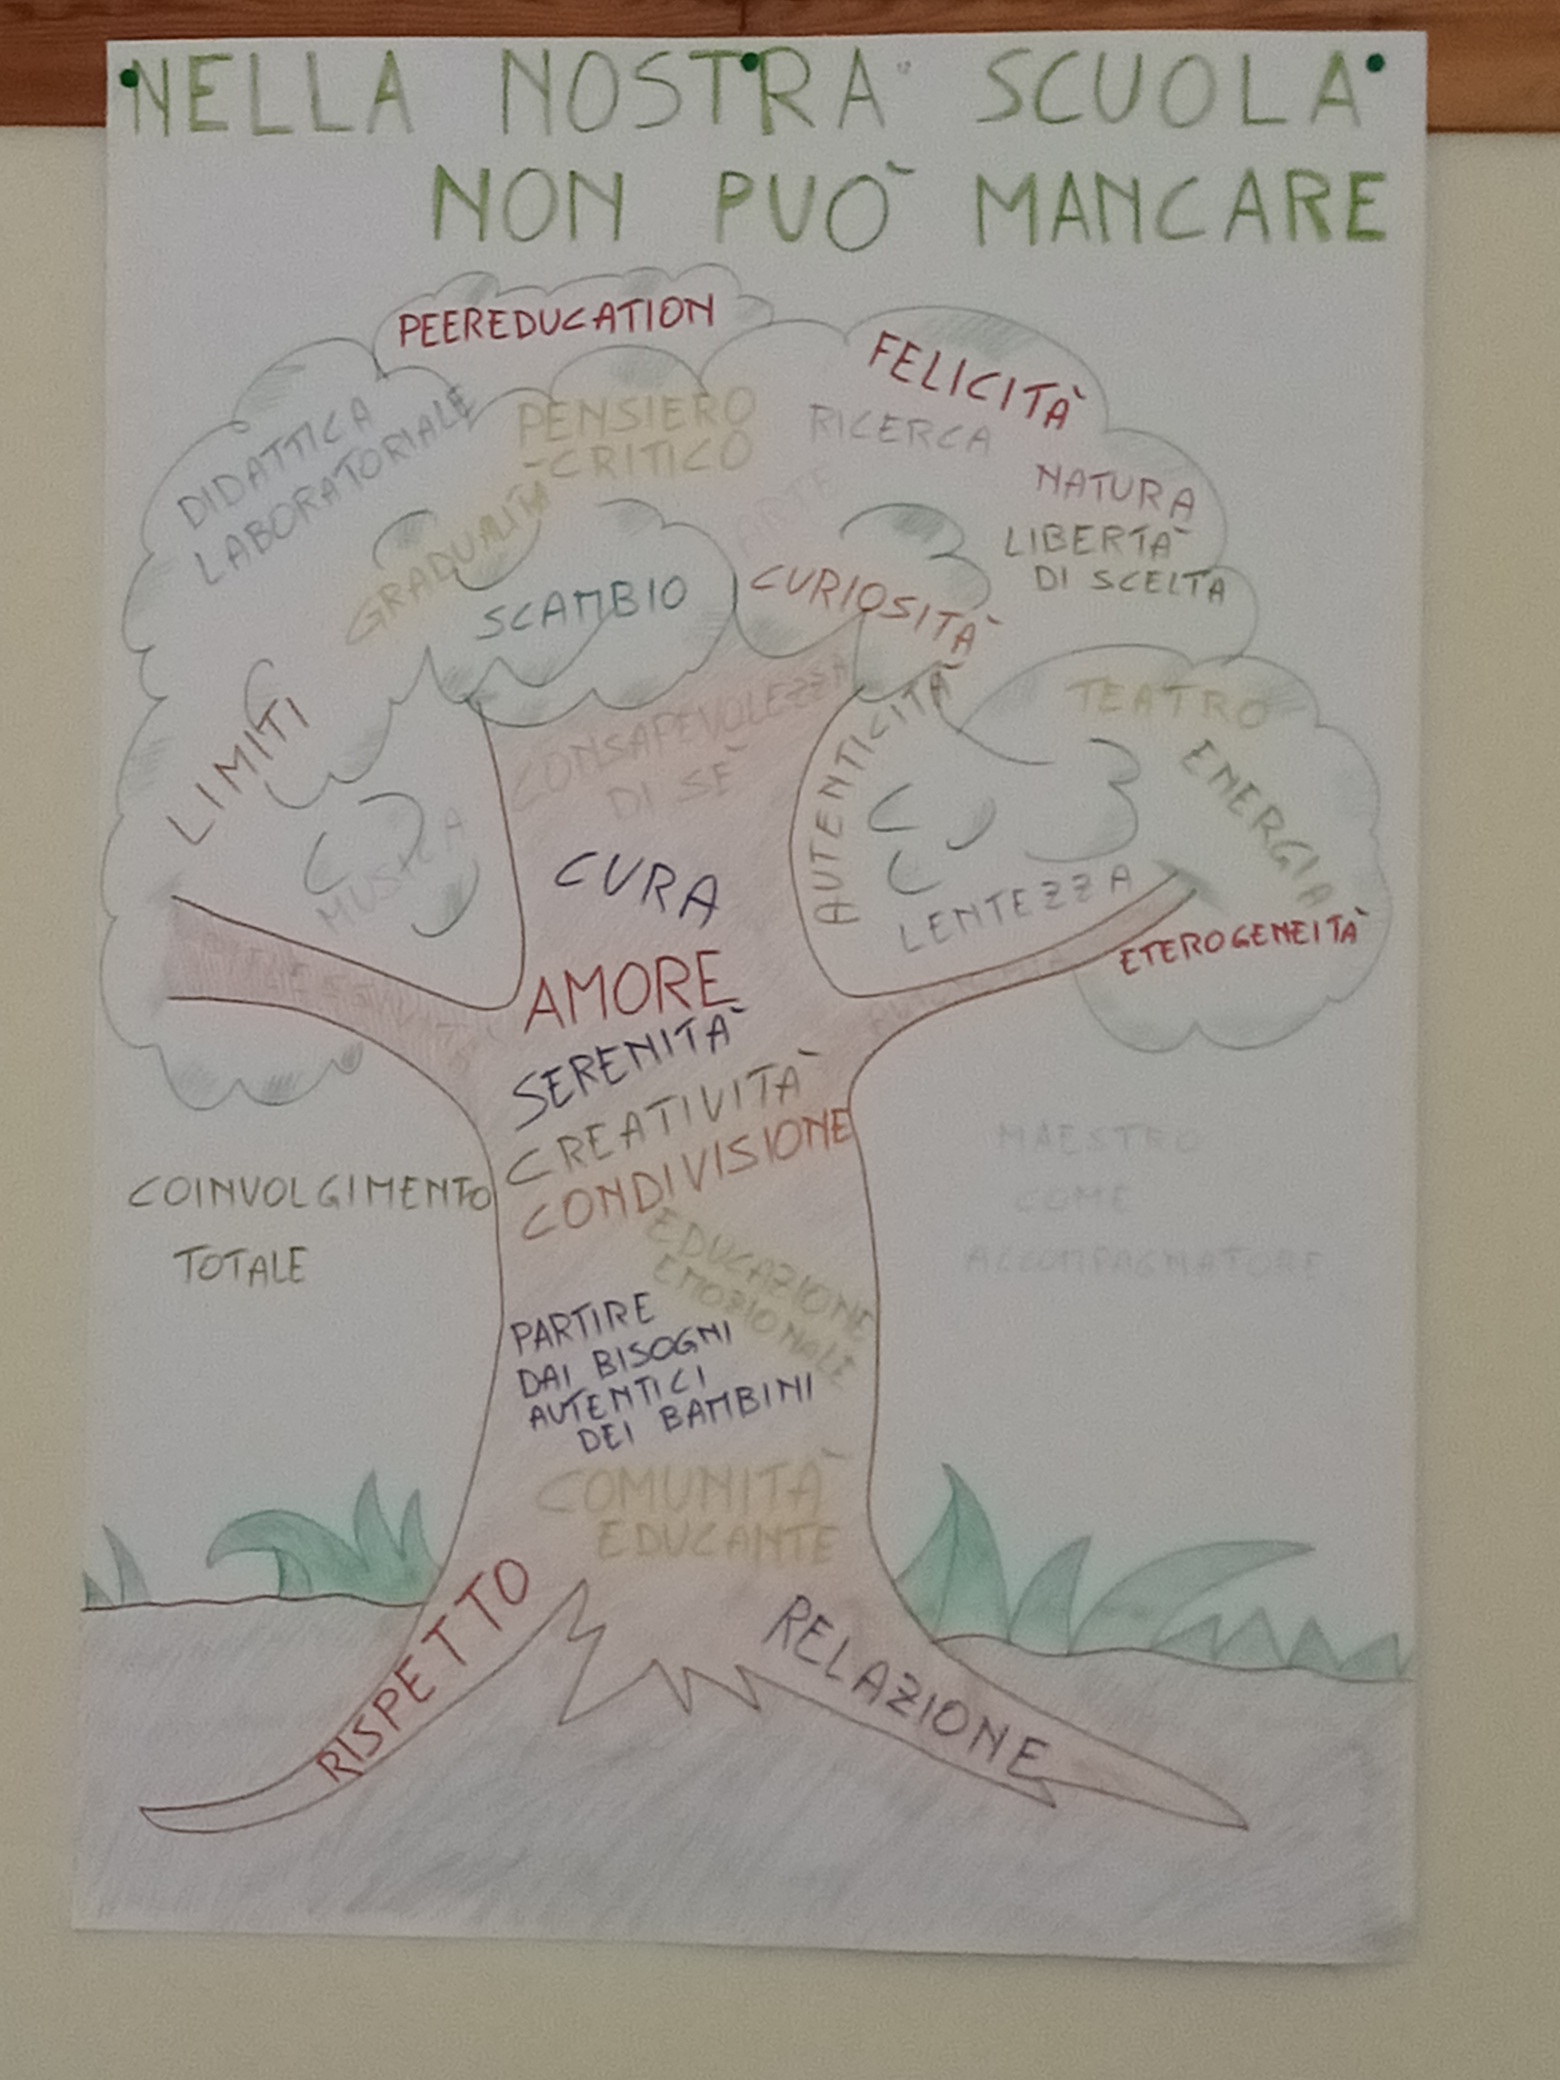 NELLA NOSTRA SCUOLA
NON PUÒ MANCARE
PEEREDUCATION
FELICITÀ
DIDATTICA
LABORATORIALE
PENSIERO
CRITICO
RICERCA
GRADUALITÀ
ARTE
NATURA
LIBERTÀ
DI SCELTA
SCAMBIO
CURIOSITÀ
LIMITI
CONSAPEVOLEZZA
DI SÈ
AUTENTICITÀ
TEATRO
ENERGIA
MUSICA
CURA
LENTEZZA
ETEROGENEITÀ
AMORE
SERENITÀ
CREATIVITÀ
CONDIVISIONE
COINVOLGIMENTO
TOTALE
MAESTRO
COME
ACCOMPAGNATORE
EDUCAZIONE
EMOZIONALE
PARTIRE
DAI BISOGNI
AUTENTICI
DEI BAMBINI
COMUNITÀ
EDUCANTE
RISPETTO
RELAZIONE